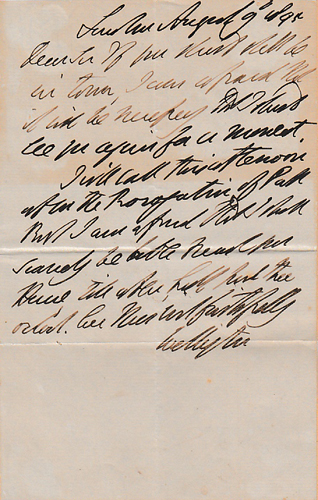 London August 9
Dear Sir If you should still be
in town, I am afraid that
it will be necessary that I should
see you again for a moment.
I will call this afternoon
after the Prorogation of Parl
But I am afraid that I shall
scarcely be able to reach your
House till after half past three
o'clock. Ever Yours most faithfully
Wellington